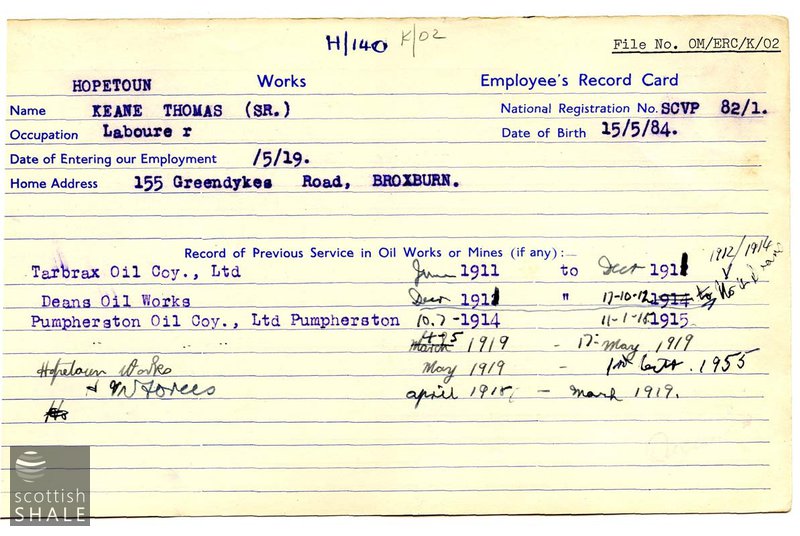 H/140 K/02
File No. OM/ERC/K/02
HOPETOUN Works Employee's Record Card
Name KEANE THOMAS (SR.) National Registration No. SCVP 82/1.
Occupation Laboure r Date of Birth 15/5/84.
Date of Entering our Employment /5/19.
Home Address 155 Greendykes Road, BROXBURN.
Record of Previous Service in Oil Works or Mines (if any):—
1912/1914
Tarbrax Oil Coy., Ltd June 1911 to Decr 1911
Deans Oil Works Decr 1911 " 17-10-12 1914 to
Pumpherston Oil Coy., Ltd Pumpherston 10.7-1914 11-1-15 1915
" " " March 1919 - 17- May 1919
Hopetoun Works May 1919 - 1955
Forces april 1915 - March 1919.
scottish
SHALE